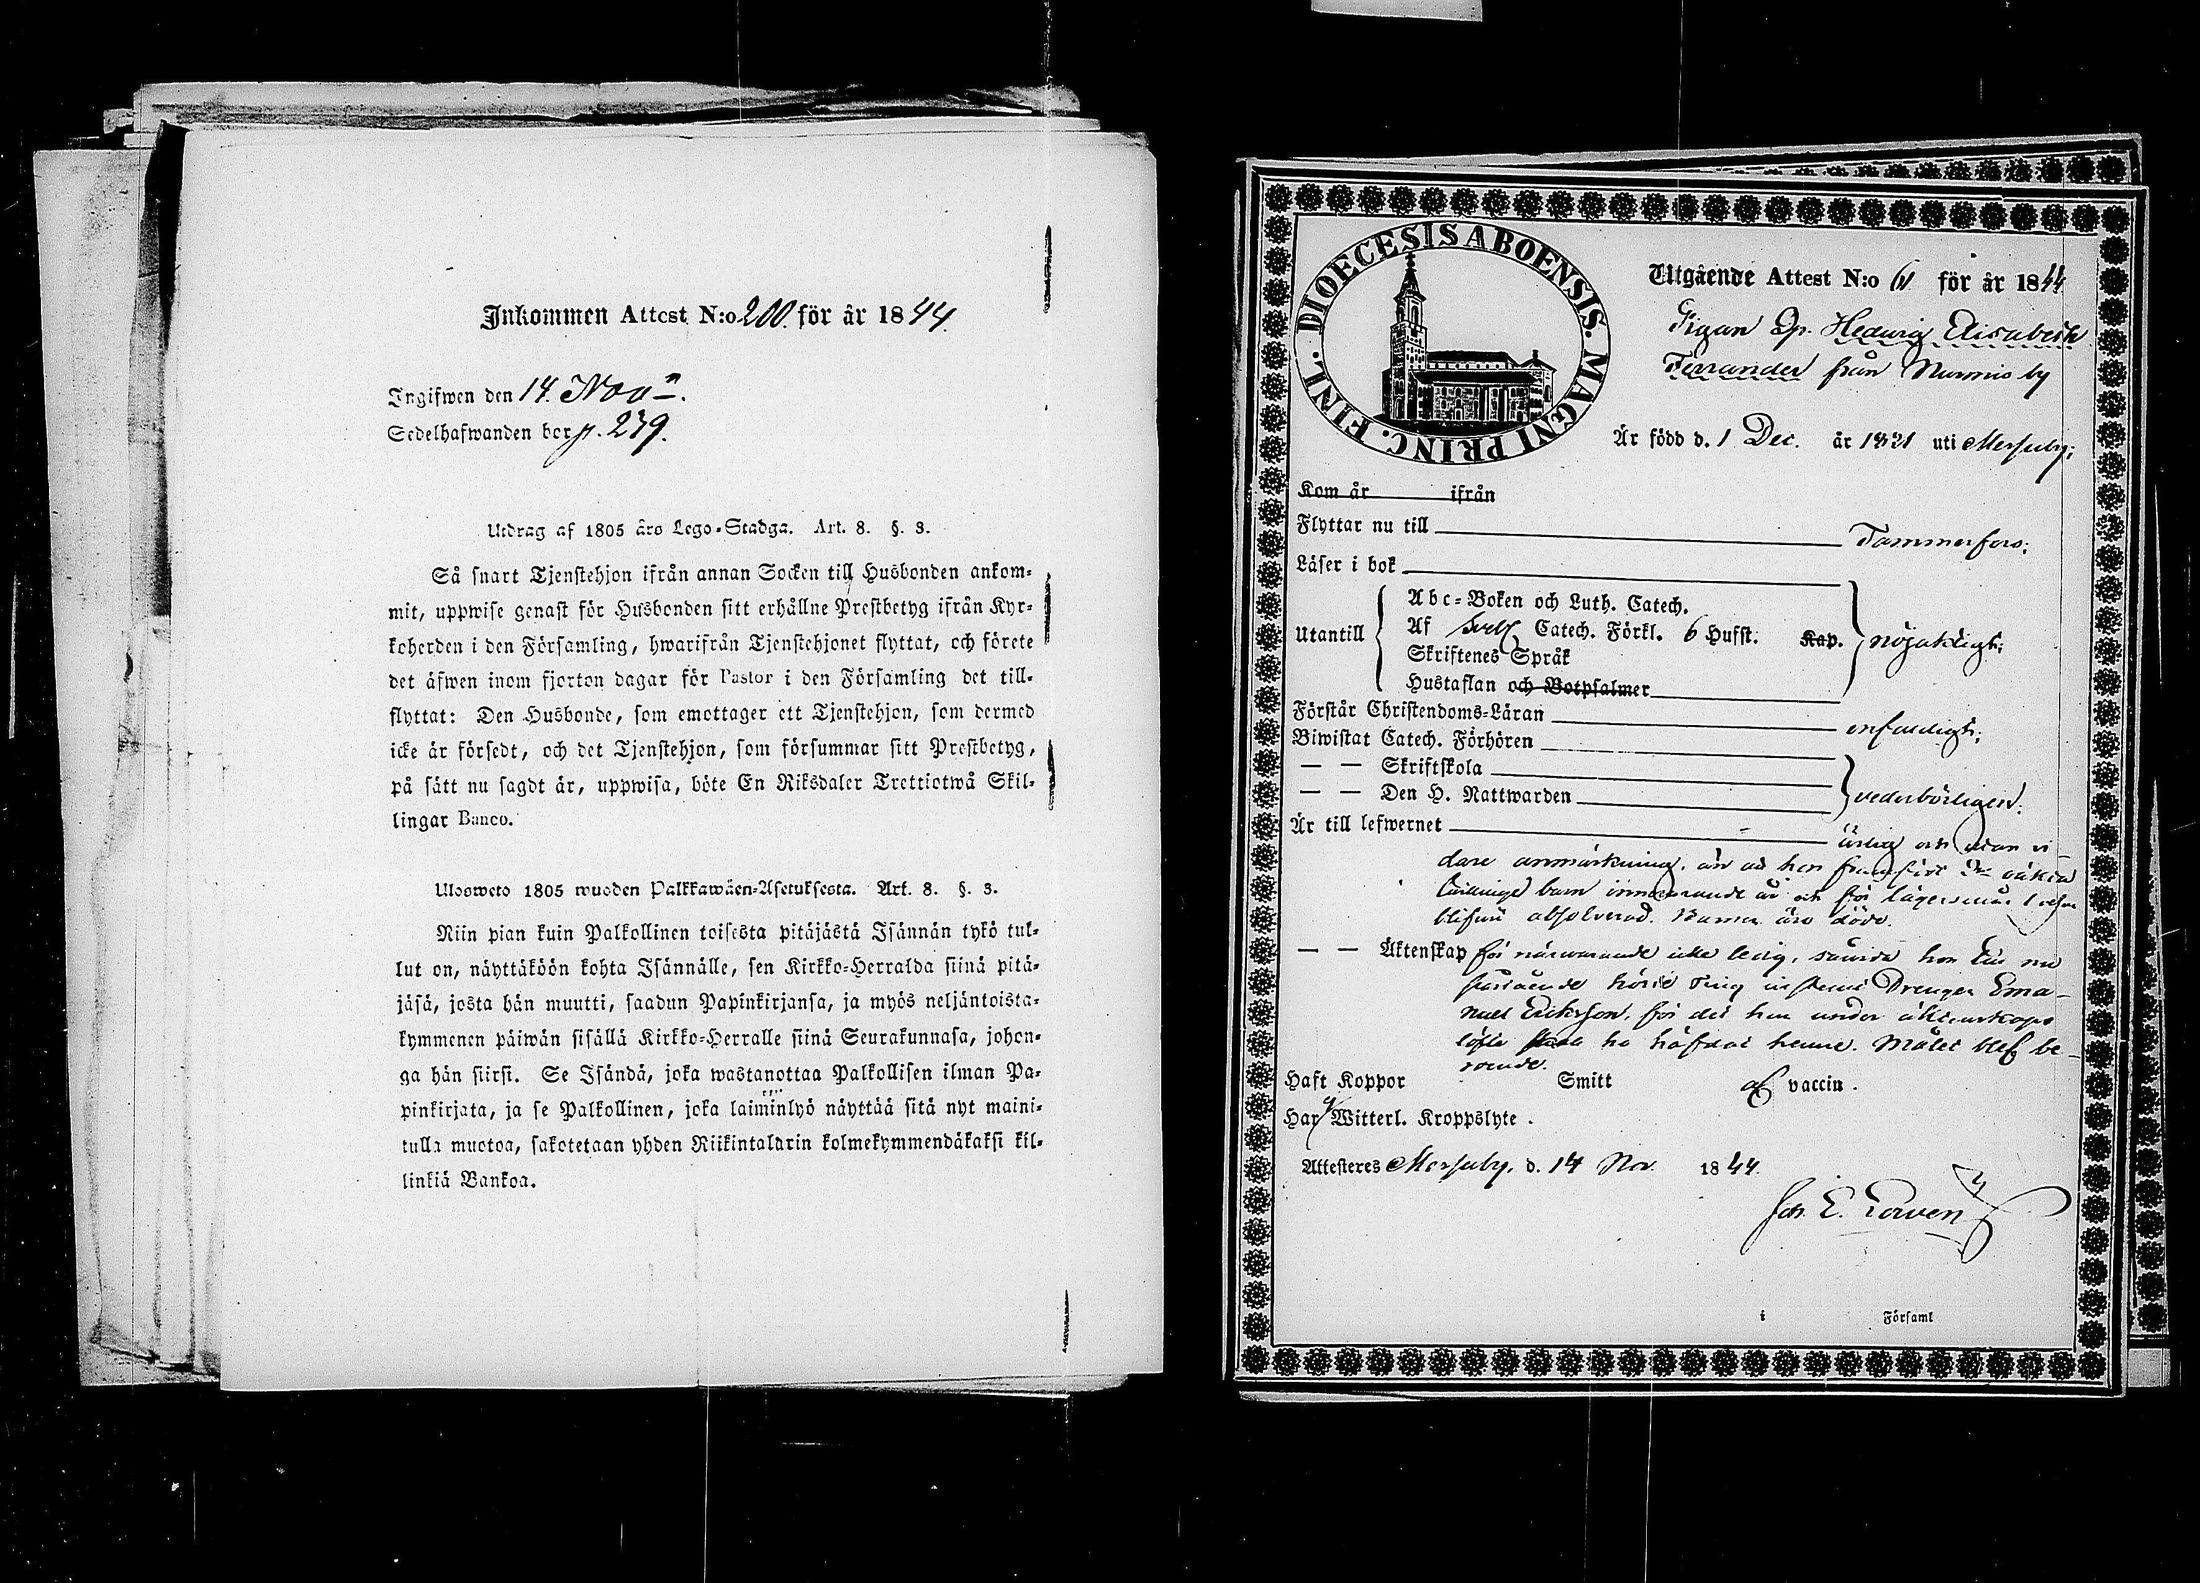 Inkommen Attest N:o 200. för år 1844.
Ingifwen den 14. Nov.
Sedelhafwanden bor p. 279.
Utdrag af 1805 års Lego-Stadga. Art. 8. §. 3.
Så snart Tjenstehjon ifrån annan Socken till Husbonden ankom-
mit, uppwise genast för Husbonden sitt erhållne Prestbetyg ifrån Kyr-
koherden i den Församling, hwarifrån Tjenstehjonet flyttat, och förete
det äfwen inom fjorton dagar för Pastor i den Församling det till-
flyttat: Den Husbonde, som emottager ett Tjenstehjon, som dermed
icke är försedt, och det Tjenstehjon, som försummar sitt Prestbetyg,
på sätt nu sagdt är, uppwisa, böte En Riksdaler Trettiotwå Skil-
lingar Banco.
Ulosweto 1805 wuoden Palkkawäen-Asetuksesta. Art. 8. §. 3.
Niin pian kuin Palkollinen toisesta pitäjästä Isännän tykö tul-
lut on, näyttäköön kohta Isännälle, sen Kirkko-Herralda siinä pitä-
jäsä, josta hän muutti, saadun Papinkirjansa, ja myös neljäntoista-
kymmenen päiwän sisällä Kirkko-Herralle siinä Seurakunnasa, johon-
ga hän siirsi. Se Isändä, joka wastanottaa Palkollisen ilman Pa-
pinkirjata, ja se Palkollinen, joka laiminlyö näyttää sitä nyt maini-
tulla muotoa, sakotetaan yhden Riikintalarin kolmekymmendäkaksi kil-
linkiä Bankoa.
DIOECESIS ABOENSIS. MAGNI PRINC. FINL.
Utgående Attest N:o 61 för år 1844
Pigan Hedvig Elisabeth
Ferrander från Nurmis by
Är född d. 1 Dec. år 1821 uti
Kom år ifrån
Flyttar nu till Tammerfors;
Läser i bok
Abc-Boken och Luth. Catech.
Utantill Af Catech. Förkl. 6 Hufst. Kap. nöjaktigt;
Skriftenes Språk
Hustaflan och Botpsalmer
Förstår Christendoms-Läran enfaldigt;
Biwistat Catech. Förhören
— — Skriftskola
— — Den H. Nattwarden vederbörligen.
Är till lefwernet ärlig och utan vi-
dare anmärkning, än att hon framfödt 2ne oäkta
barn och för lägersmål
blifvit absolverad. Barnen äro döde.
— — Äktenskap för närvarande icke ledig, hon till nu
Ting Drengen Ema-
nuel Ericksson, för det han under äktenskaps
löfte ha häfdat henne. Målet blef be-
roende.
Haft Koppor Smitt af vaccin.
Har ej Witterl. Kroppslyte.
Attesteres d. 14 Nov. 1844.
Joh. E.
i Församl